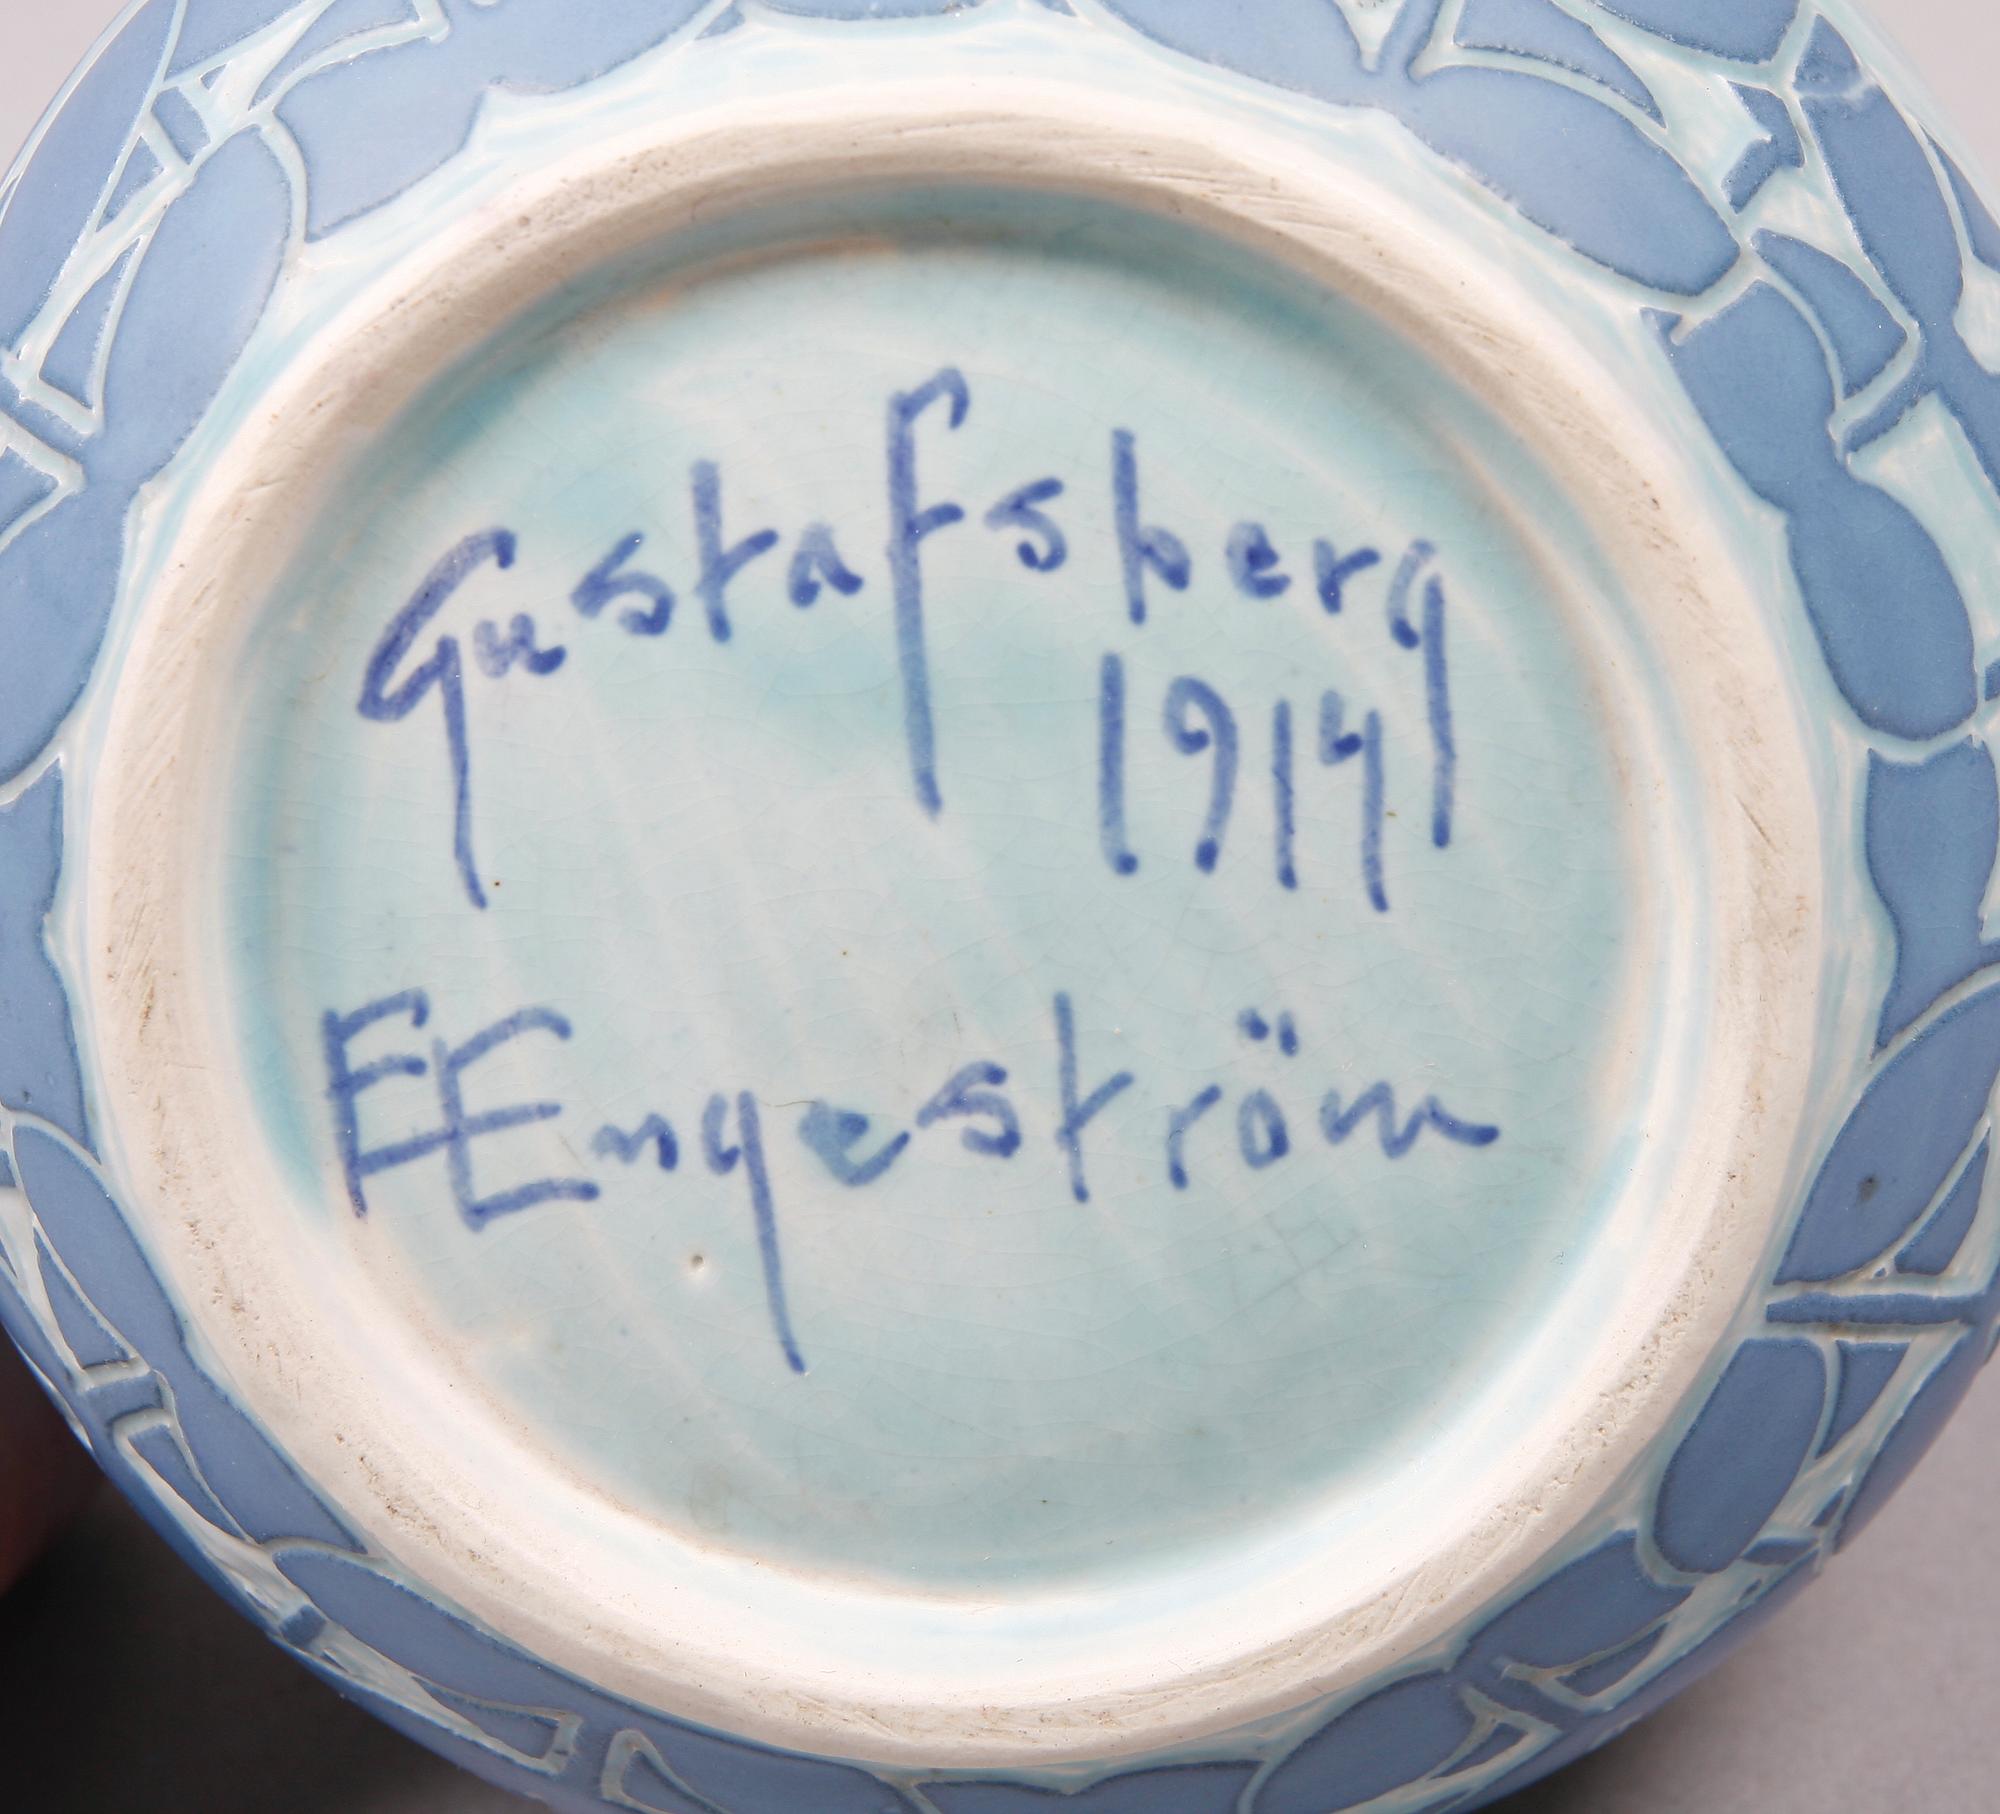 Gustafsberg
1914
EEngeström